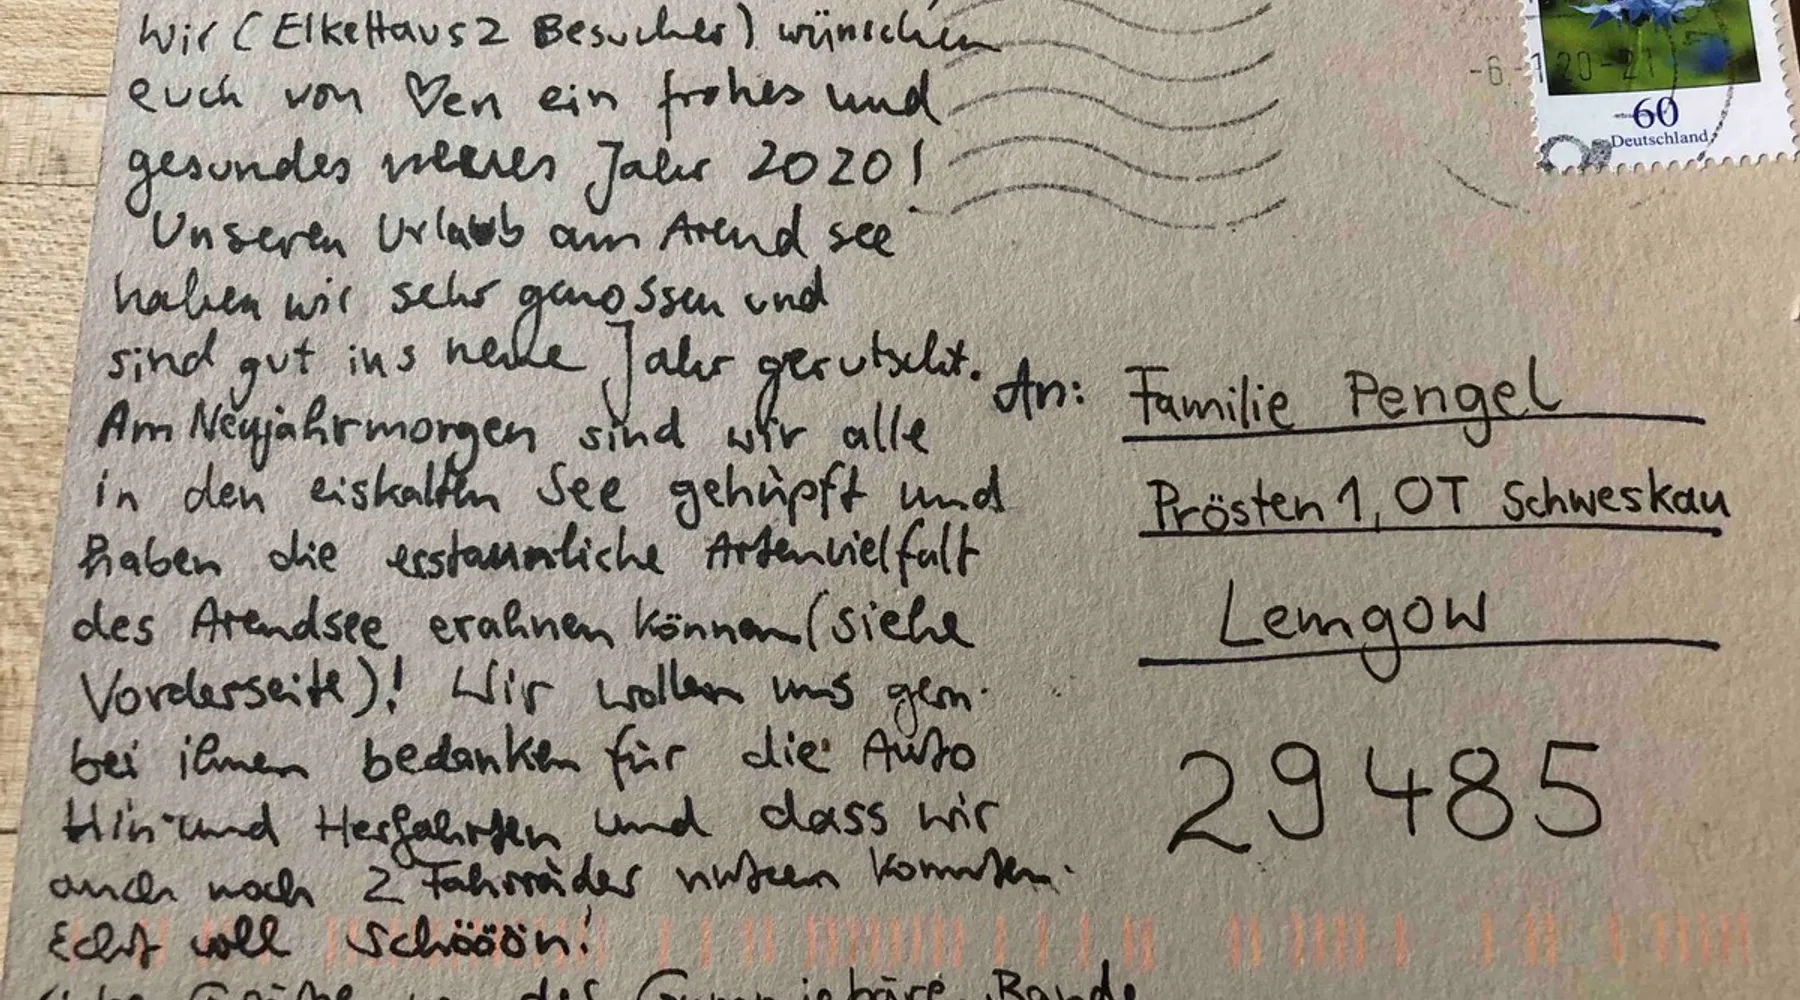 Wir (ElkeHaus2 Besucher) wünschen
euch von ♡en ein frohes und
gesundes neues Jahr 2020!
Unseren Urlaub am Arendsee
haben wir sehr genossen und
sind gut ins neue Jahr gerutscht.
Am Neujahrmorgen sind wir alle
in den eiskalten See gehüpft und
haben die erstaunliche Artenvielfalt
des Arendsee erahnen können (siehe
Vorderseite)! Wir wollen uns gern
bei ihnen bedanken für die Auto
Hin- und Herfahrten und dass wir
auch noch 2 Fahrräder nutzen konnten.
Echt voll schööön!
Liebe Grüße von der Gummibäre Bande
-6.-1 20-21
60
Deutschland
An: Familie Pengel
Prösten 1, OT Schweskau
Lemgow
29485